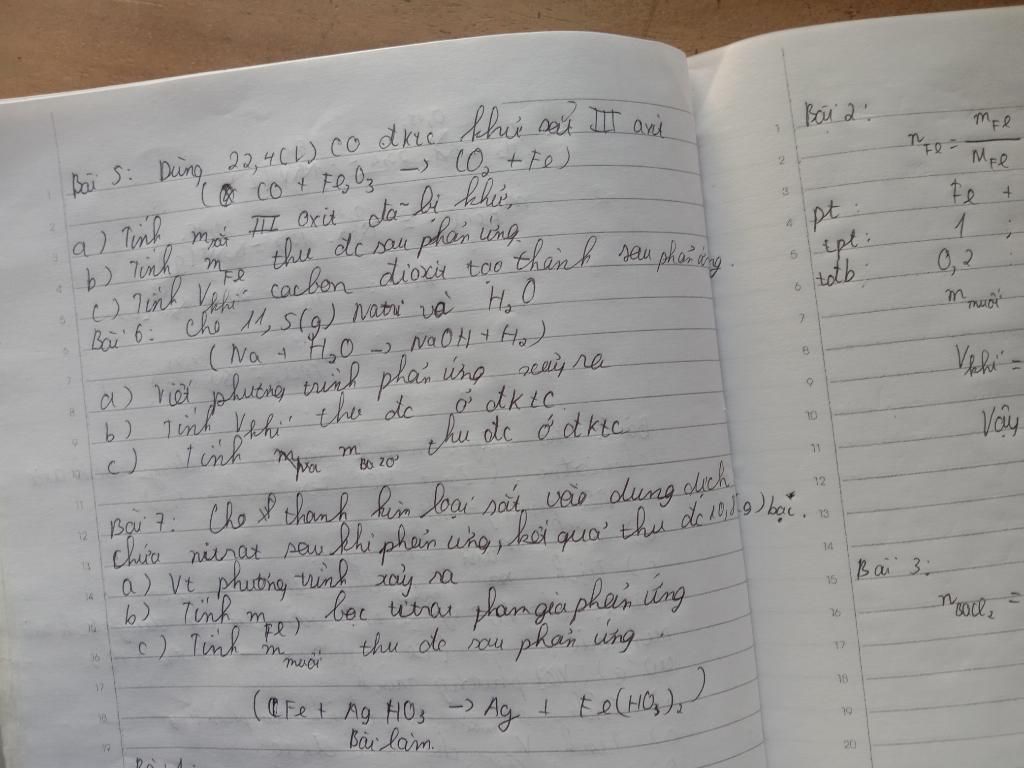 Bài 5: Dùng 22,4(l) CO đktc khử sắt III oxit
( CO + Fe2O3 → CO2 + Fe)
a) Tính m sắt III oxit đã bị khử.
b) Tính mFe thu đc sau phản ứng
c) Tính Vkhí cacbon đioxit tạo thành sau phản ứng.
Bài 6: Cho 11,5(g) Natri và H2O
(Na + H2O → NaOH + H2)
a) Viết phương trình phản ứng xảy ra
b) Tính Vkhí thu đc ở đktc
c) Tính m thu đc ở đktc
Bài 7: Cho thanh kim loại sắt vào dung dịch
chứa nitrat sau khi phản ứng, kết quả thu đc 10,8g) bạc.
a) Vt phương trình xảy ra
b) Tính mFe) bạc nitrat tham gia phản ứng
c) Tính mmuối thu đc sau phản ứng.
(Fe + Ag HO3 → Ag + Fe(HO3)2)
Bài làm.
Bài 2:
nFe = mFe / MFe
pt: Fe +
tpt: 1 :
totb: 0,2
mmuối
Vkhí =
Vậy
Bài 3: